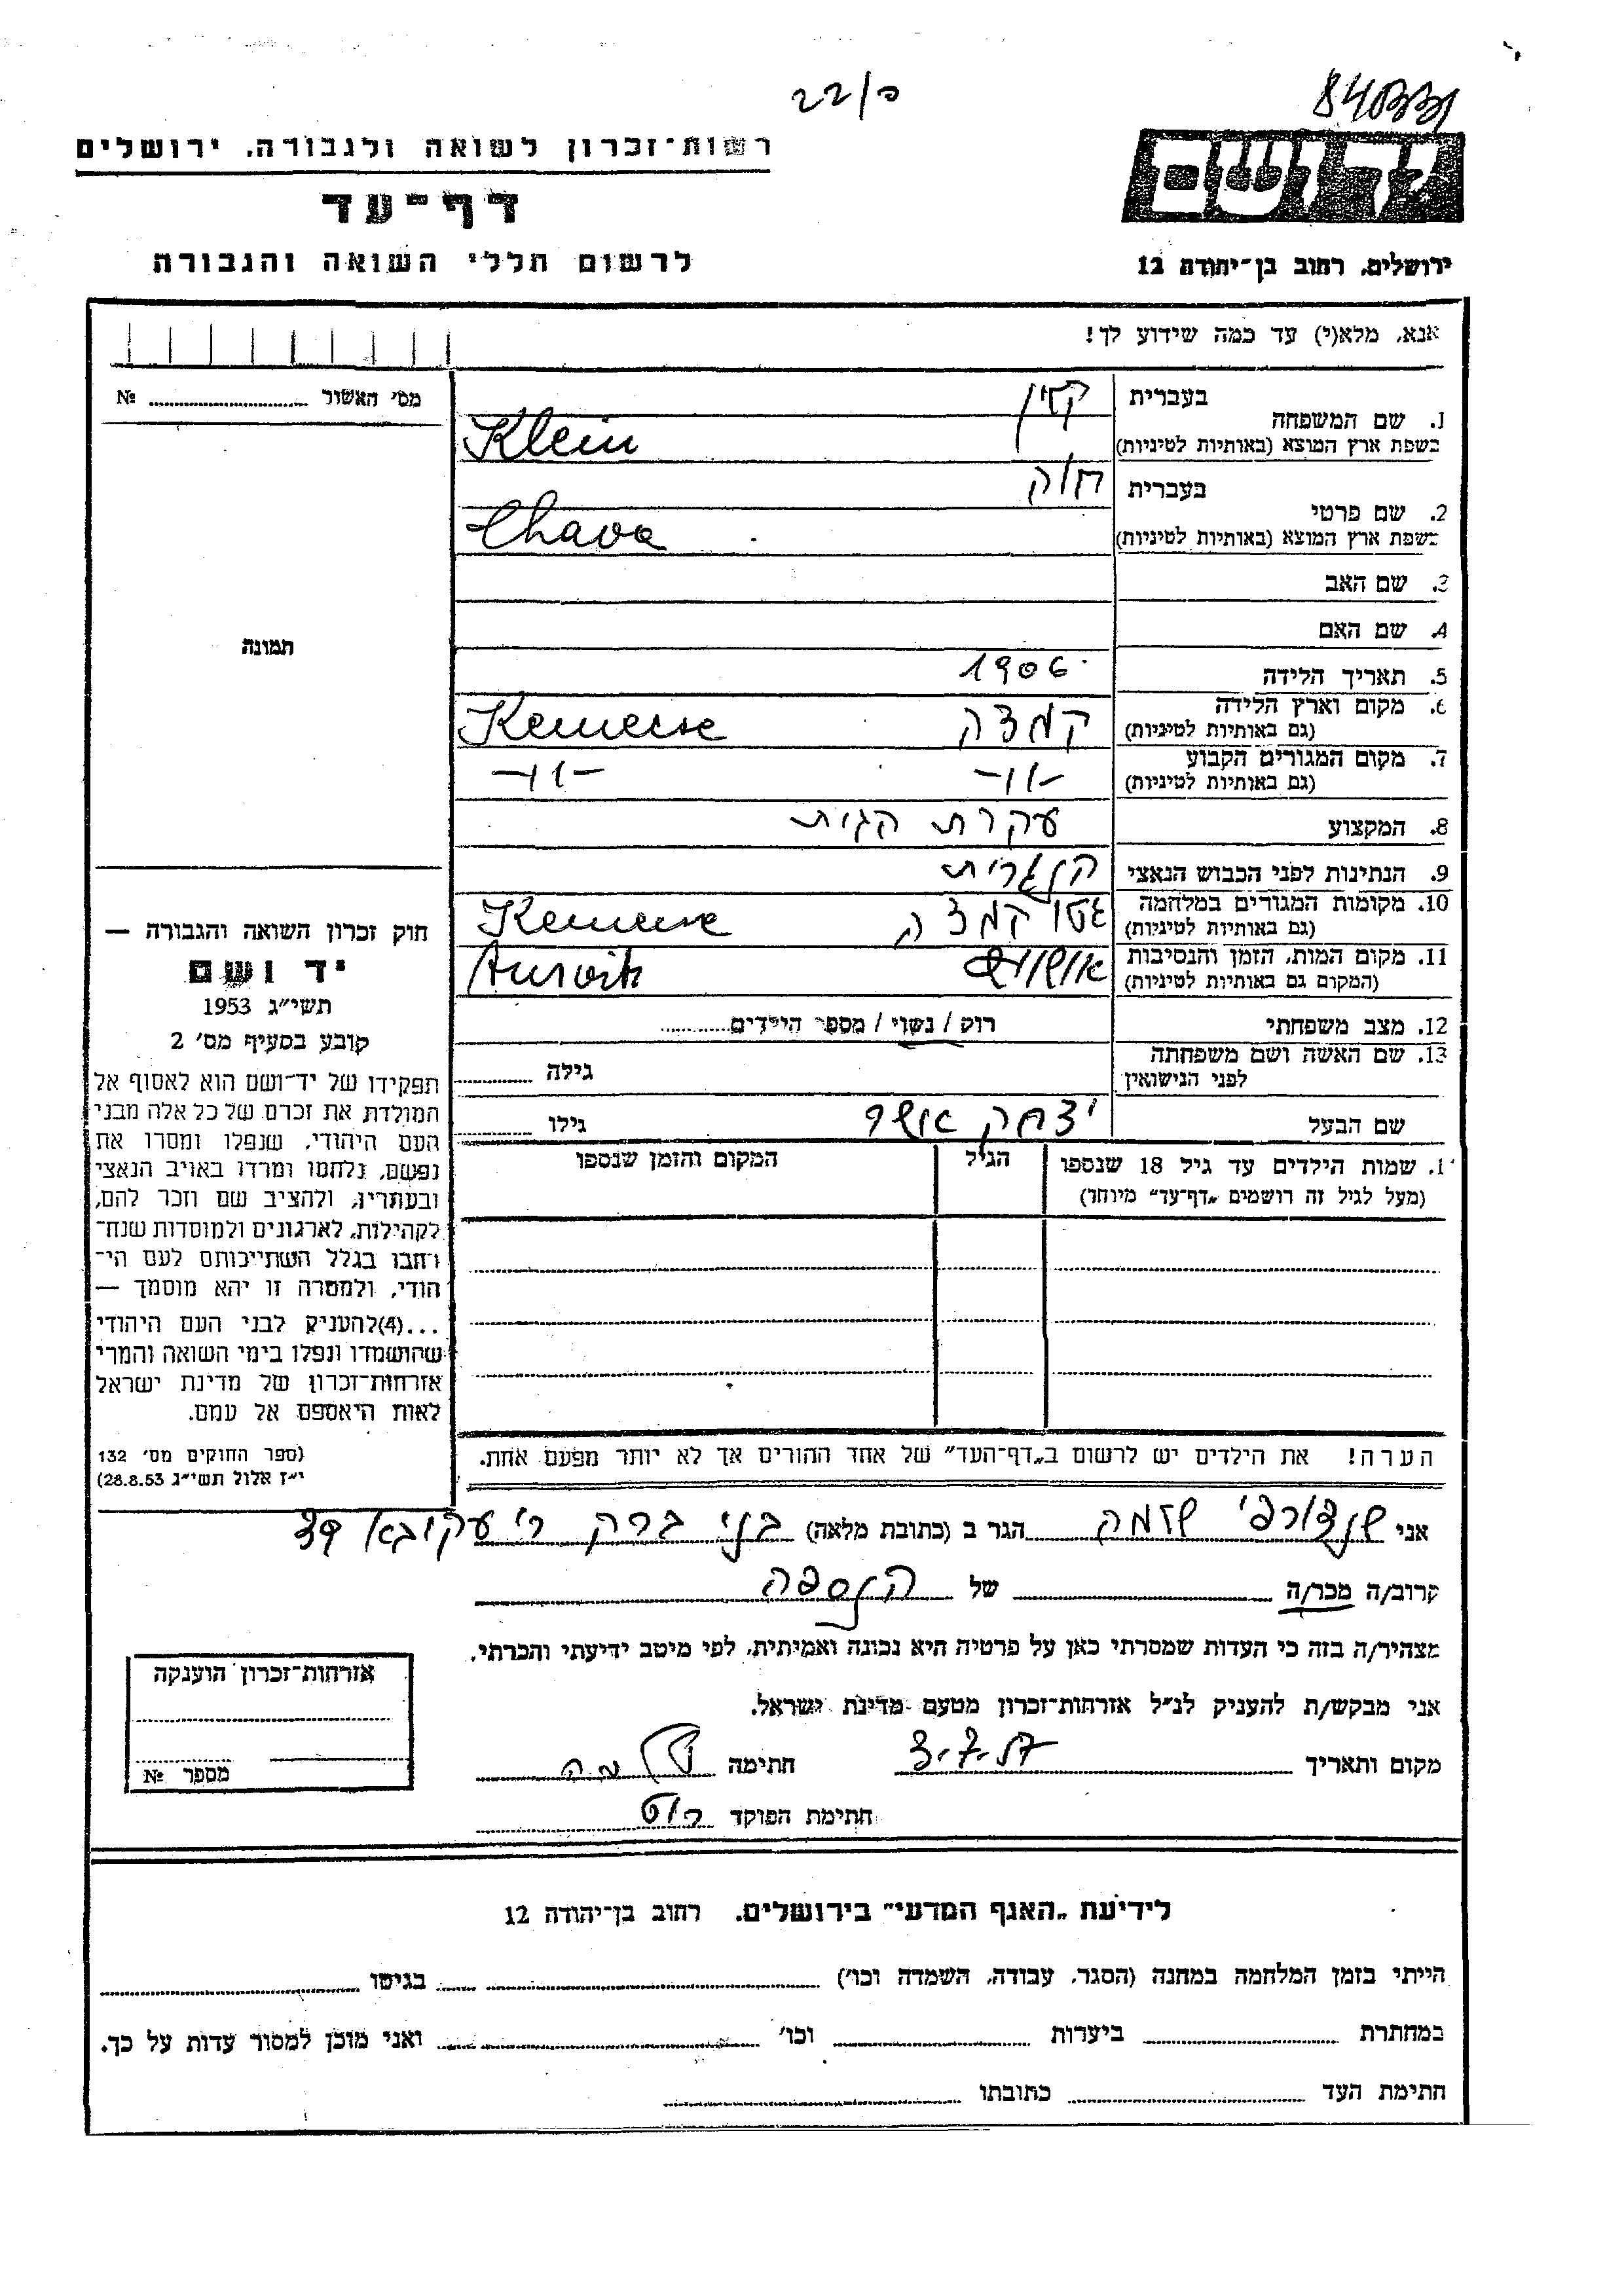 22/פ
רשות־זכרון לשואה ולגבורה, ירושלים
דף־עד
לרשום חללי השואה והגבורה
יד ושם
ירושלים, רחוב בן־יהודה 12
אנא, מלא(י) עד כמה שידוע לך!
מס' האשור № 
תמונה
1. שם המשפחה
בעברית קליין
בשפת ארץ המוצא (באותיות לטיניות) Klein
2. שם פרטי
בעברית חוה
בשפת ארץ המוצא (באותיות לטיניות) Chava
3. שם האב
4. שם האם
5. תאריך הלידה 1906
6. מקום וארץ הלידה
(גם באותיות לטיניות) קמצה Kemecse
7. מקום המגורים הקבוע
(גם באותיות לטיניות) -וו- -וו-
8. המקצוע עקרת הבית
9. הנתינות לפני הכבוש הנאצי הונגרית
10. מקומות המגורים במלחמה
(גם באותיות לטיניות) גטו קמצה Kemecse
11. מקום המות, הזמן והנסיבות
(המקום גם באותיות לטיניות) אושוויץ
12. מצב משפחתי רוק / נשוי / מספר הילדים
13. שם האשה ושם משפחתה
לפני הנישואין גילה
שם הבעל יצחק אשר גילו
שמות הילדים עד גיל 18 שנספו
(מעל לגיל זה רושמים "דף־עד" מיוחד)
הגיל
המקום והזמן שנספו
הערה! את הילדים יש לרשום ב"דף־העד" של אחד ההורים אך לא יותר מפעם אחת.
חוק זכרון השואה והגבורה —
יד ושם
תשי"ג 1953
קובע בסעיף מס' 2
תפקידו של יד־ושם הוא לאסוף אל
המולדת את זכרם של כל אלה מבני
העם היהודי, שנפלו ומסרו את
נפשם, נלחמו ומרדו באויב הנאצי
ובעוזריו, ולהציב שם וזכר להם,
לקהילות, לארגונים ולמוסדות שנח־
רחבו בגלל השתייכותם לעם הי־
הודי, ולמטרה זו יהא מוסמך —
...(4) להעניק לבני העם היהודי
שהושמדו ונפלו בימי השואה והמרי
אזרחות־זכרון של מדינת ישראל
לאות היאספם אל עמם.
(ספר החוקים מס' 132
י"ז אלול תשי"ג 28.8.53)
אני שלמה הגר ב (כתובת מלאה) בני ברק ר' עקיבא
קרוב/ה מכר/ה של הנספה
מצהיר/ה בזה כי העדות שמסרתי כאן על פרטיה היא נכונה ואמיתית, לפי מיטב ידיעתי והכרתי.
אני מבקש/ת להעניק לנ"ל אזרחות־זכרון מטעם מדינת ישראל.
מקום ותאריך 3.7.57 חתימה
חתימת הפוקד
אזרחות־זכרון הוענקה
מספר №
לידיעת "האגף המדעי" בירושלים, רחוב בן־יהודה 12
הייתי בזמן המלחמה במחנה (הסגר, עבודה, השמדה וכו') בגיטו
במחתרת ביערות וכו' ואני מוכן למסור עדות על כך.
חתימת העד כתובתו